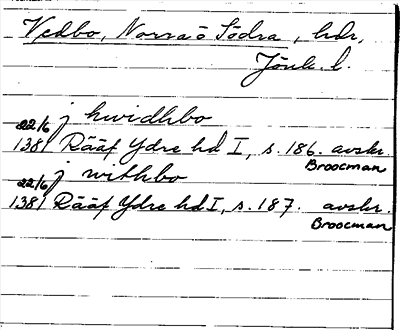 Vedbo, Norra o Södra, hdr,
Jönk. l.
j hwidhbo
22/6
1381 Rääf Ydre hd I, s. 186. avskr.
Broocman
j withbo
22/6
1381 Rääf Ydre hd I, s. 187. avskr.
Broocman